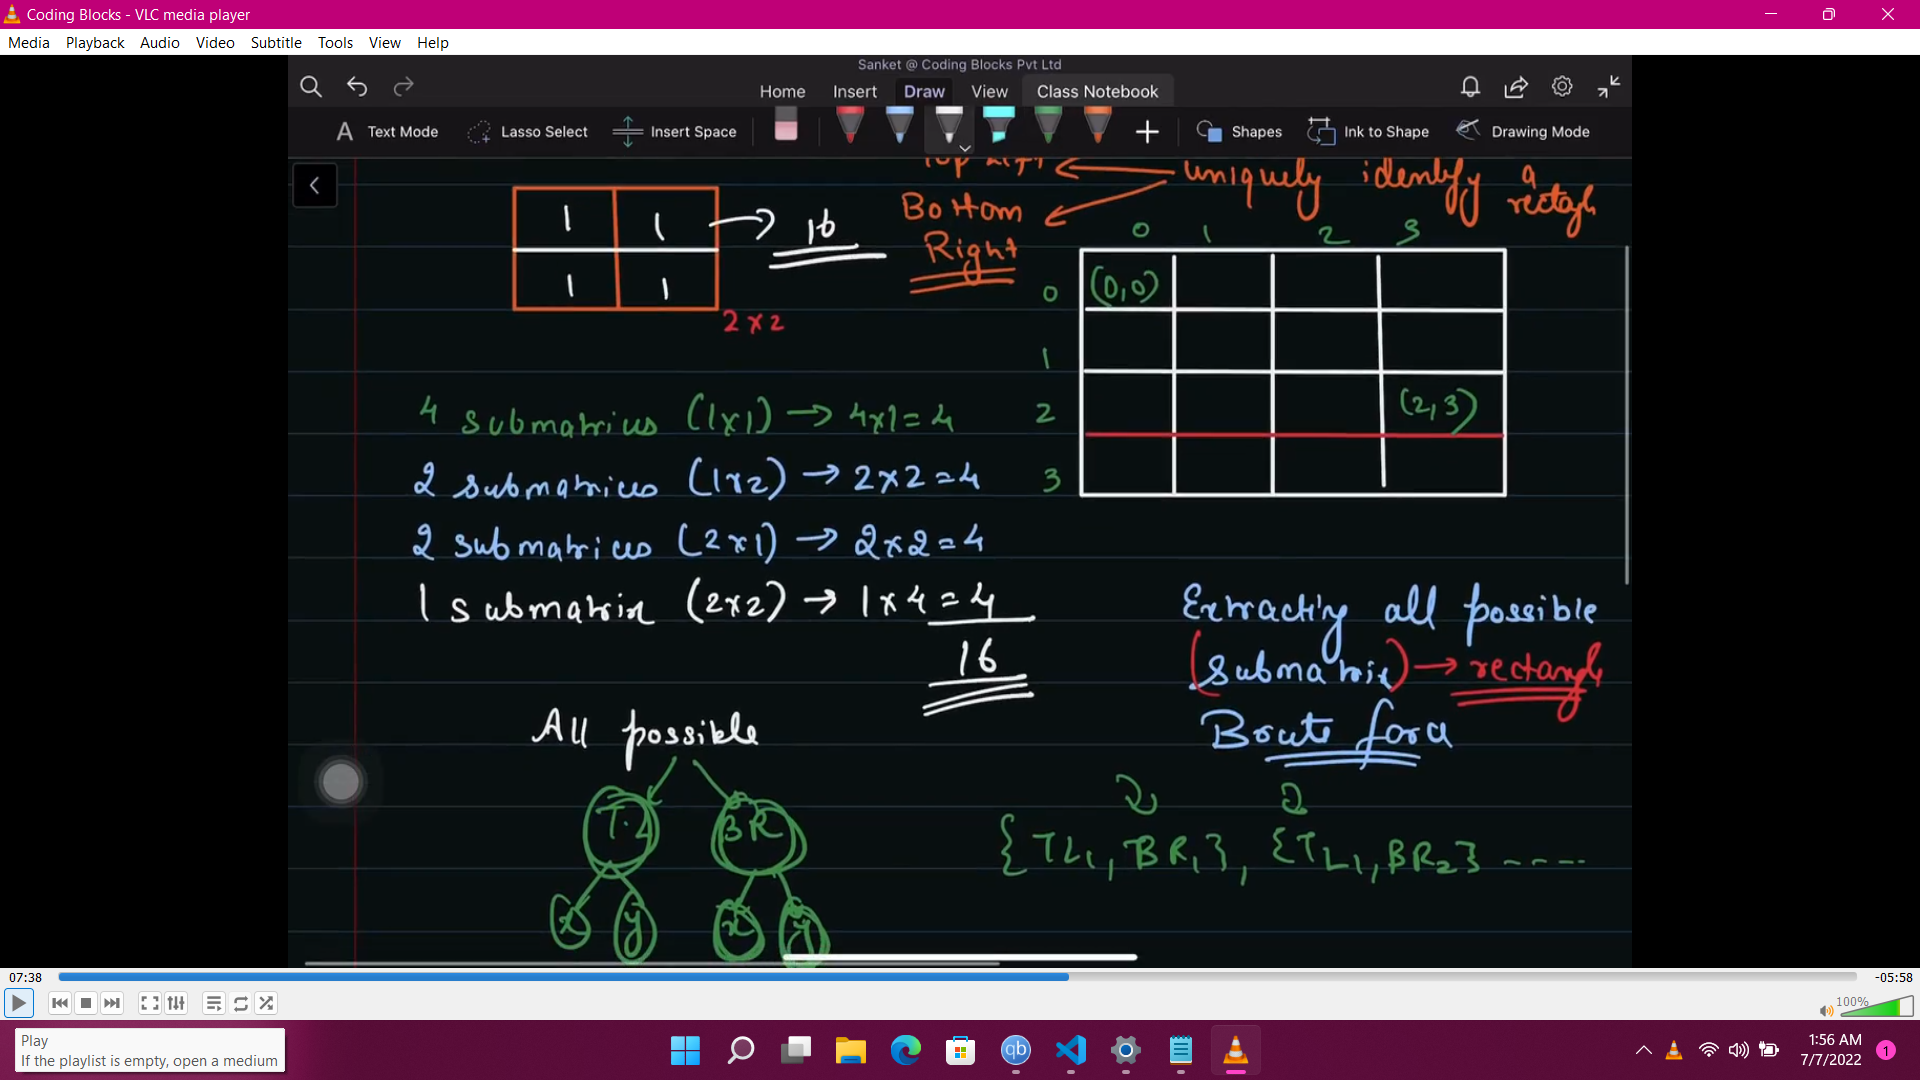 Coding Blocks - VLC media player
Media Playback Audio Video Subtitle Tools View Help
Sanket @ Coding Blocks Pvt Ltd
Home Insert Draw View Class Notebook
Text Mode Lasso Select Insert Space Shapes Ink to Shape Drawing Mode
Top Left uniquely identify a
rectagle
Bottom
Right
1 1 16
1 1
2 x 2
0 1 2 3
0 (0,0)
1
2 (2,3)
3
4 submatrices (1x1) → 4x1 = 4
2 submatrices (1x2) → 2x2 = 4
2 submatrices (2x1) → 2x2 = 4
1 submatrix (2x2) → 1x4 = 4
16
Extracting all possible
(submatrix) → rectangle
Brute force
All possible
T.L BR
x y x y
{TL1, BR1}, {TL1, BR2} ----
07:38
-05:58
100%
Play
If the playlist is empty, open a medium
qb
1:56 AM
7/7/2022
1